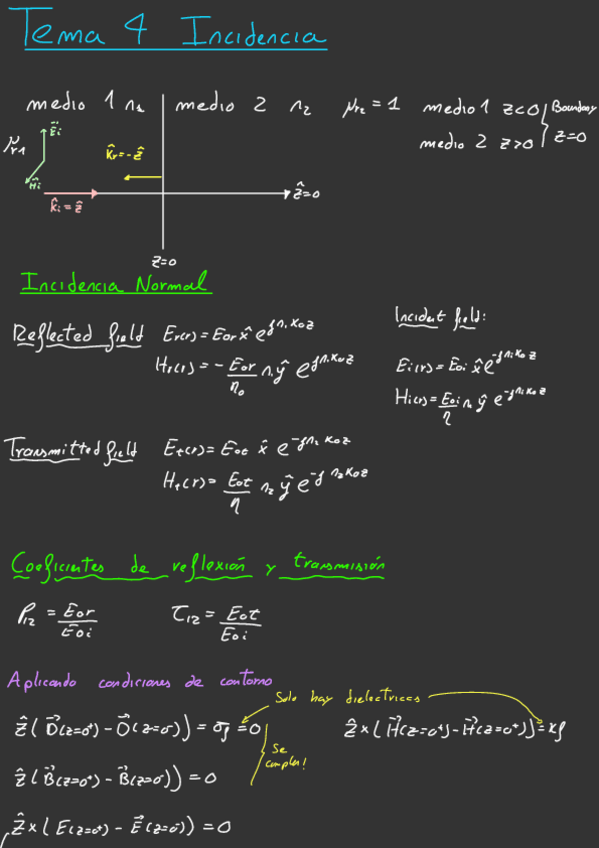 Tema 4 Incidencia
medio 1 n₁ | medio 2 n₂ μr₂ = 1 medio 1 z<0 } Boundary
μr1 medio 2 z>0 z=0
E⃗i
k̂r=-ẑ
H⃗i
k̂i = ẑ
ẑ=0
z=0
Incidencia Normal
Incident field:
Reflected field Er(r) = E0r x̂ e^{jn₁k0z}
Hr(r) = - E0r/η0 n₁ ŷ e^{jn₁k0z}
Ei(r) = E0i x̂ e^{-jn₁k0z}
Hi(r) = E0i/η n₁ ŷ e^{-jn₁k0z}
Transmitted field Et(r) = E0t x̂ e^{-jn₂k0z}
Ht(r) = E0t/η n₂ ŷ e^{-jn₂k0z}
Coeficientes de reflexión y transmisión
ρ12 = E0r/E0i τ12 = E0t/E0i
Aplicando condiciones de contorno
Solo hay dielectricos
ẑ(D⃗(z=0⁺) - D⃗(z=0⁻)) = σf = 0
ẑ×(H⃗(z=0⁺) - H⃗(z=0⁺)) =
Se
cumplen!
ẑ(B⃗(z=0⁺) - B⃗(z=0⁻)) = 0
ẑ×(E(z=0⁺) - E⃗(z=0⁻)) = 0